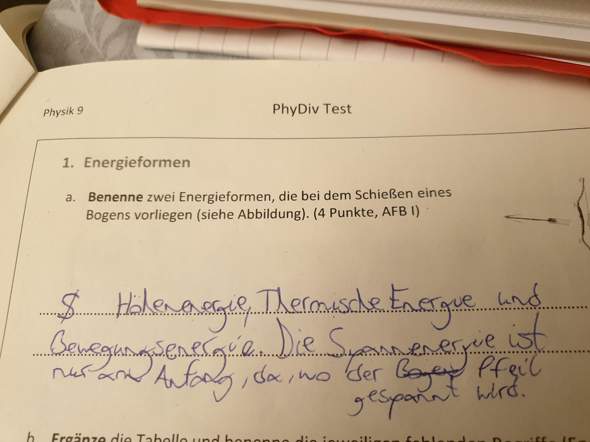 Physik 9
PhyDiv Test
1. Energieformen
a. Benenne zwei Energieformen, die bei dem Schießen eines
Bogens vorliegen (siehe Abbildung). (4 Punkte, AFB I)
Höhenenergie, Thermische Energie und
Bewegungsenergie. Die Spannenergie ist
nur am Anfang, da, wo der Bogen Pfeil
gespannt wird.
b. Ergänze die Tabelle und benenne die jeweiligen fehlenden Begriffe